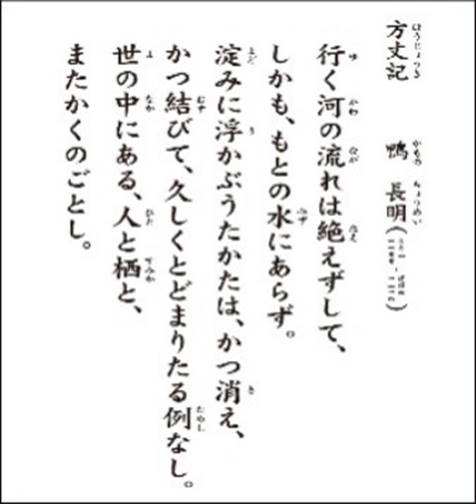 方丈記　鴨　長明
行く河の流れは絶えずして、
しかも、もとの水にあらず。
淀みに浮かぶうたかたは、かつ消え、
かつ結びて、久しくとどまりたる例なし。
世の中にある、人と栖と、
またかくのごとし。